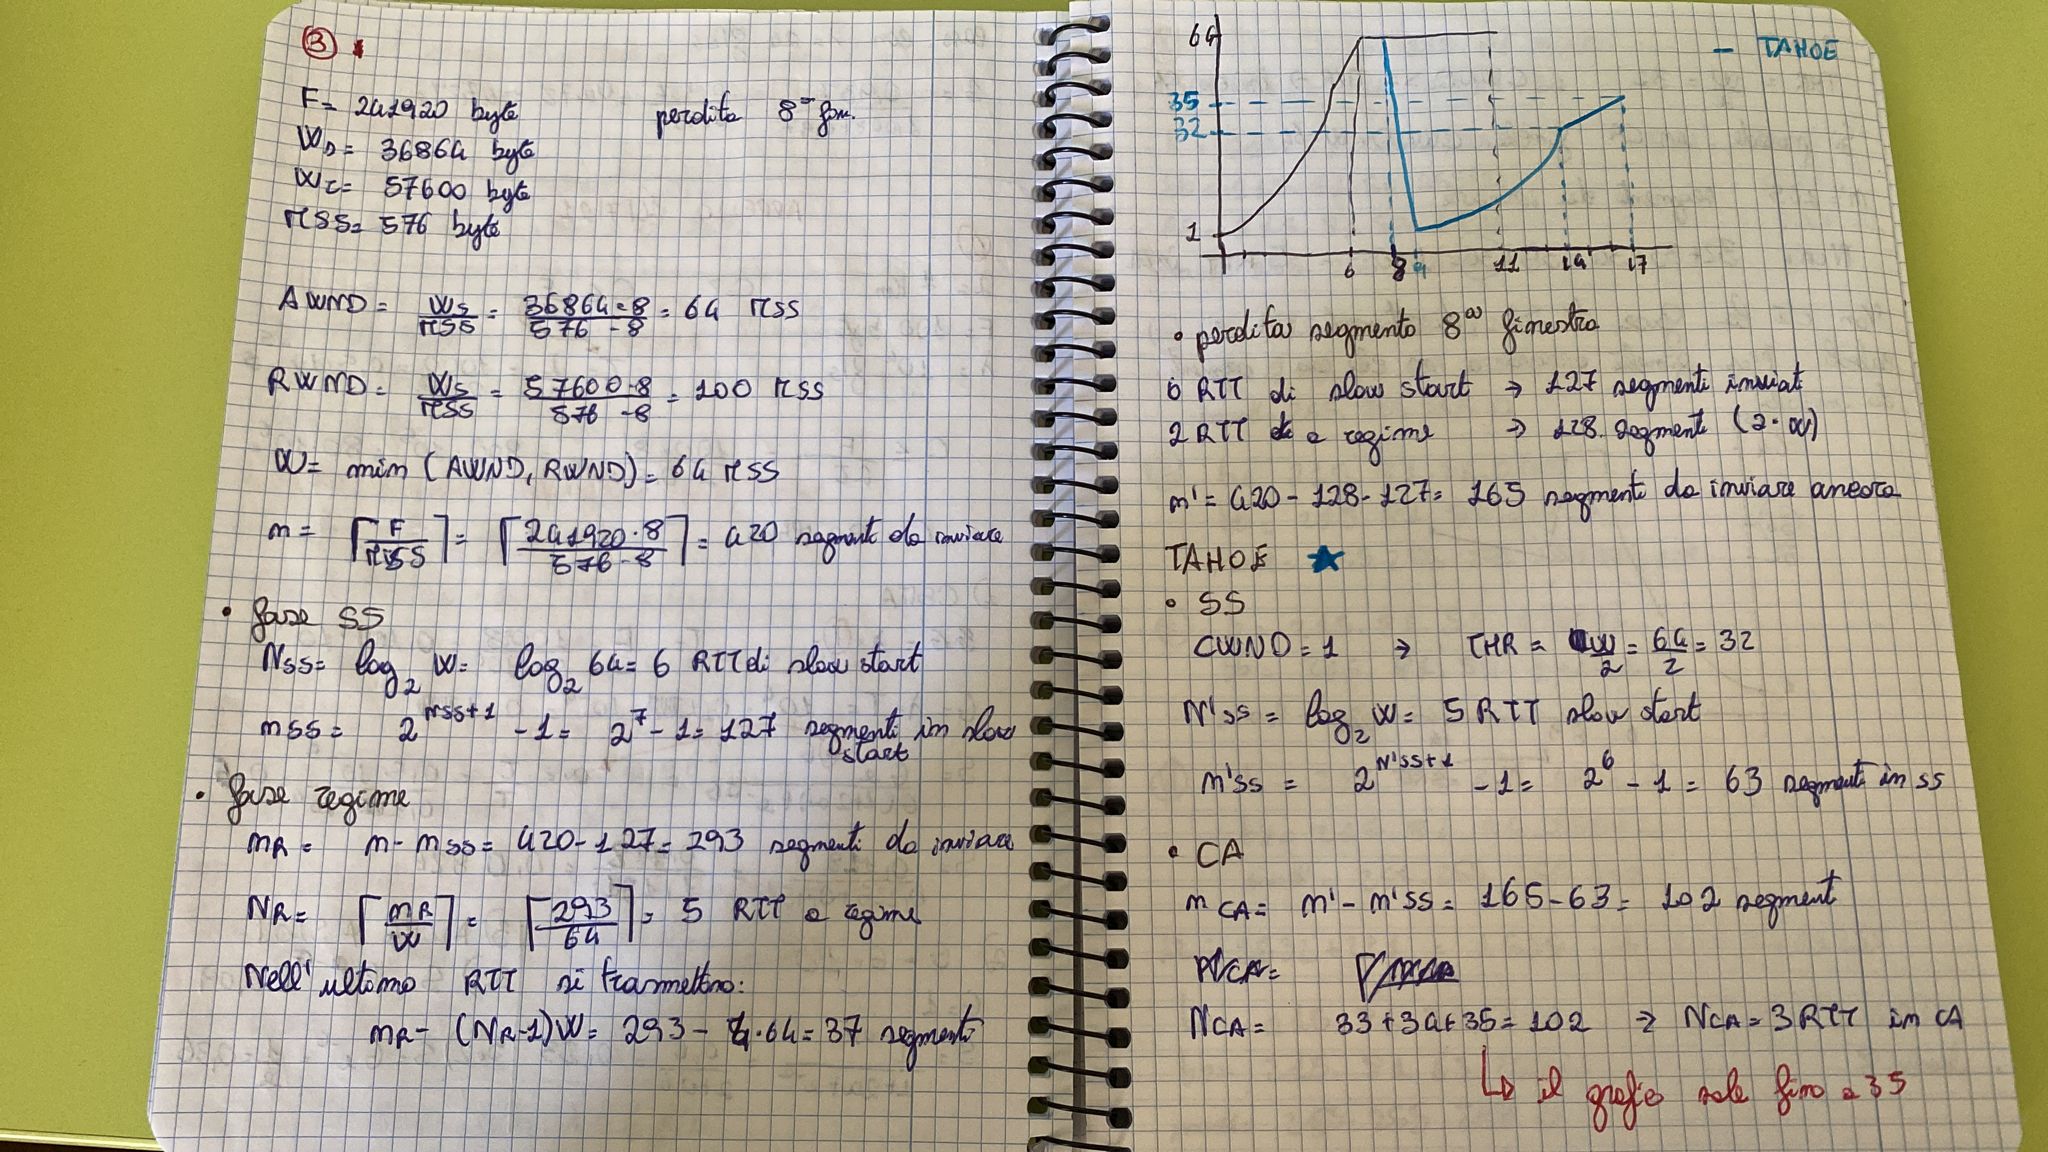 3
F= 241920 byte perdita 8ª fin.
WD= 36864 byte
WC= 57600 byte
MSS= 576 byte
AWND= WS/MSS = 36864·8/576·8 = 64 MSS
RWND= WS/MSS = 57600·8/576·8 = 100 MSS
W= min (AWND, RWND)= 64 MSS
m= ⌈F/MSS⌉= ⌈241920·8/576·8⌉= 420 segmenti da inviare
• fase SS
NSS= log₂ W= log₂ 64= 6 RTT di slow start
mSS= 2^(NSS+1) -1= 2^7 -1= 127 segmenti in slow
start
• fase regime
mR= m-mSS= 420-127= 293 segmenti da inviare
NR= ⌈mR/W⌉= ⌈293/64⌉= 5 RTT a regime
Nell'ultimo RTT si trasmettono:
mR- (NR-1)W= 293 - 4·64= 37 segmenti
- TAHOE
64
35
32
1
6 8 9 11 14 17
• perdita segmento 8ª finestra
6 RTT di slow start → 127 segmenti inviati
2 RTT a regime → 128 segmenti (2·W)
m'= 420-128-127= 165 segmenti da inviare ancora
TAHOE ★
• SS
CWND=1 → THR= W/2=64/2=32
N'SS= log₂ W= 5 RTT slow start
m'SS= 2^(N'SS+1) -1= 2^6 -1= 63 segmenti in SS
• CA
mCA= m'-m'SS= 165-63= 102 segmenti
NCA=
NCA= 33+34+35=102 → NCA=3RTT in CA
↳ il grafico sale fino a 35